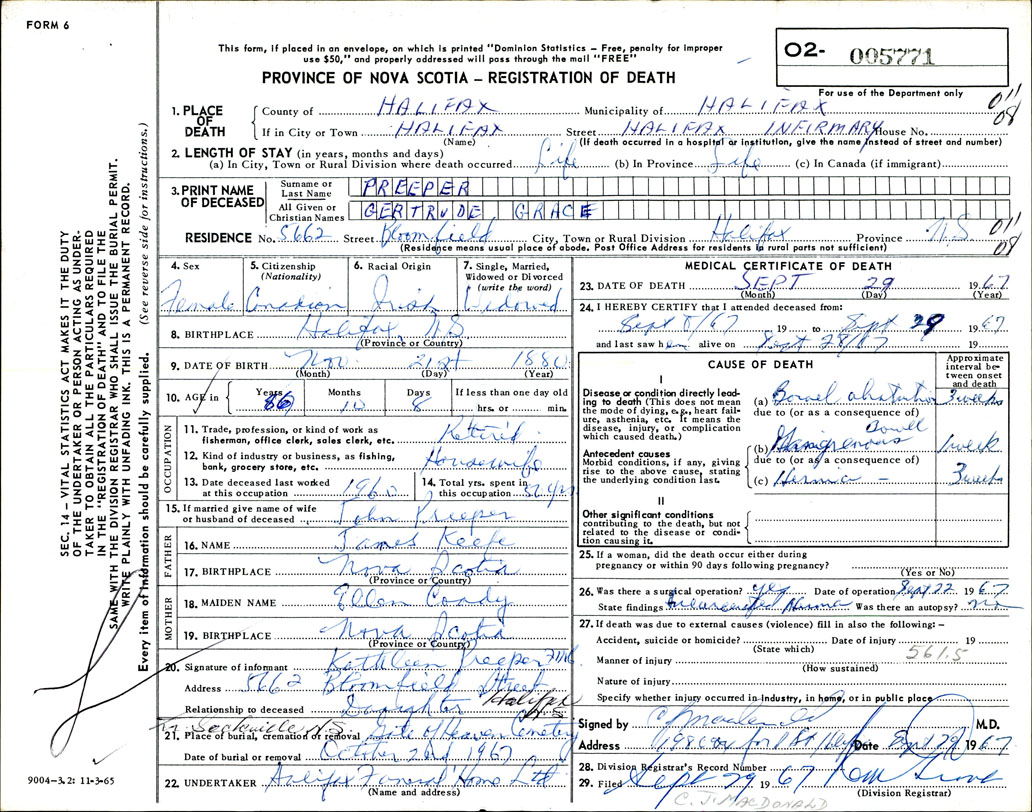 FORM 6
This form, if placed in an envelope, on which is printed "Dominion Statistics – Free, penalty for improper
use $50," and properly addressed will pass through the mail "FREE"
PROVINCE OF NOVA SCOTIA – REGISTRATION OF DEATH
O2- 005771
For use of the Department only
011
08
1. PLACE OF DEATH
County of HALIFAX Municipality of HALIFAX
If in City or Town HALIFAX Street HALIFAX INFIRMARY House No.
(Name) (If death occurred in a hospital or institution, give the name instead of street and number)
2. LENGTH OF STAY (in years, months and days)
(a) In City, Town or Rural Division where death occurred Life (b) In Province Life (c) In Canada (if immigrant)
3. PRINT NAME OF DECEASED
Surname or Last Name PREEPER
All Given or Christian Names GERTRUDE GRACE
RESIDENCE No. 5662 Street Bloomfield City, Town or Rural Division Halifax Province N.S
(Residence means usual place of abode. Post Office Address for residents in rural parts not sufficient)
011
08
4. Sex Female
5. Citizenship (Nationality) Canadian
6. Racial Origin Irish
7. Single, Married, Widowed or Divorced (write the word) Widowed
8. BIRTHPLACE Halifax N.S
(Province or Country)
9. DATE OF BIRTH Nov. 21st 1880
(Month) (Day) (Year)
10. AGE in Years 86 Months 10 Days 8 If less than one day old
hrs. or min.
OCCUPATION
11. Trade, profession, or kind of work as fisherman, office clerk, sales clerk, etc. Retired
12. Kind of industry or business, as fishing, bank, grocery store, etc. Housewife
13. Date deceased last worked at this occupation 1960
14. Total yrs. spent in this occupation
15. If married give name of wife or husband of deceased John Preeper
FATHER
16. NAME James Keefe
17. BIRTHPLACE Nova Scotia
(Province or Country)
MOTHER
18. MAIDEN NAME Ellen Coady
19. BIRTHPLACE Nova Scotia
(Province or Country)
20. Signature of informant Kathleen Preeper
Address 5662 Bloomfield Street
Halifax
Relationship to deceased Daughter
Sackville N.S.
21. Place of burial, cremation or removal Gate of Heaven Cemetery
Date of burial or removal October 2nd 1967
22. UNDERTAKER Halifax Funeral Home Ltd
(Name and address)
MEDICAL CERTIFICATE OF DEATH
23. DATE OF DEATH SEPT 29 1967
(Month) (Day) (Year)
24. I HEREBY CERTIFY that I attended deceased from:
Sept 8/67 19 to Sept 29 1967
and last saw her alive on Sept 28/67 19
CAUSE OF DEATH
Approximate interval between onset and death
I
Disease or condition directly leading to death (This does not mean the mode of dying, e.g., heart failure, asthenia, etc. It means the disease, injury, or complication which caused death.)
(a) Bowel obstruction 3 weeks
due to (or as a consequence of)
Antecedent causes
Morbid conditions, if any, giving rise to the above cause, stating the underlying condition last.
(b) Gangrenous Bowel 1 week
due to (or as a consequence of)
(c) Hernia – 3 weeks
II
Other significant conditions
contributing to the death, but not related to the disease or condition causing it.
25. If a woman, did the death occur either during
pregnancy or within 90 days following pregnancy?
(Yes or No)
26. Was there a surgical operation? yes Date of operation Sept 22 1967
State findings Incarcerated Hernia Was there an autopsy? no
27. If death was due to external causes (violence) fill in also the following: –
Accident, suicide or homicide? Date of injury 19
(State which)
561.5
Manner of injury
(How sustained)
Nature of injury
Specify whether injury occurred in industry, in home, or in public place
Signed by M.D.
Address Date Sept 29 1967
28. Division Registrar's Record Number
29. Filed Sept 29 1967
(Division Registrar)
C. J. MACDONALD
SEC. 14 – VITAL STATISTICS ACT MAKES IT THE DUTY
OF THE UNDERTAKER OR PERSON ACTING AS UNDER-
TAKER TO OBTAIN ALL THE PARTICULARS REQUIRED
IN THE "REGISTRATION OF DEATH" AND TO FILE THE
SAME WITH THE DIVISION REGISTRAR WHO SHALL ISSUE THE BURIAL PERMIT.
WRITE PLAINLY WITH UNFADING INK. THIS IS A PERMANENT RECORD.
Every item of information should be carefully supplied. (See reverse side for instructions.)
9004-3.2: 11-3-65